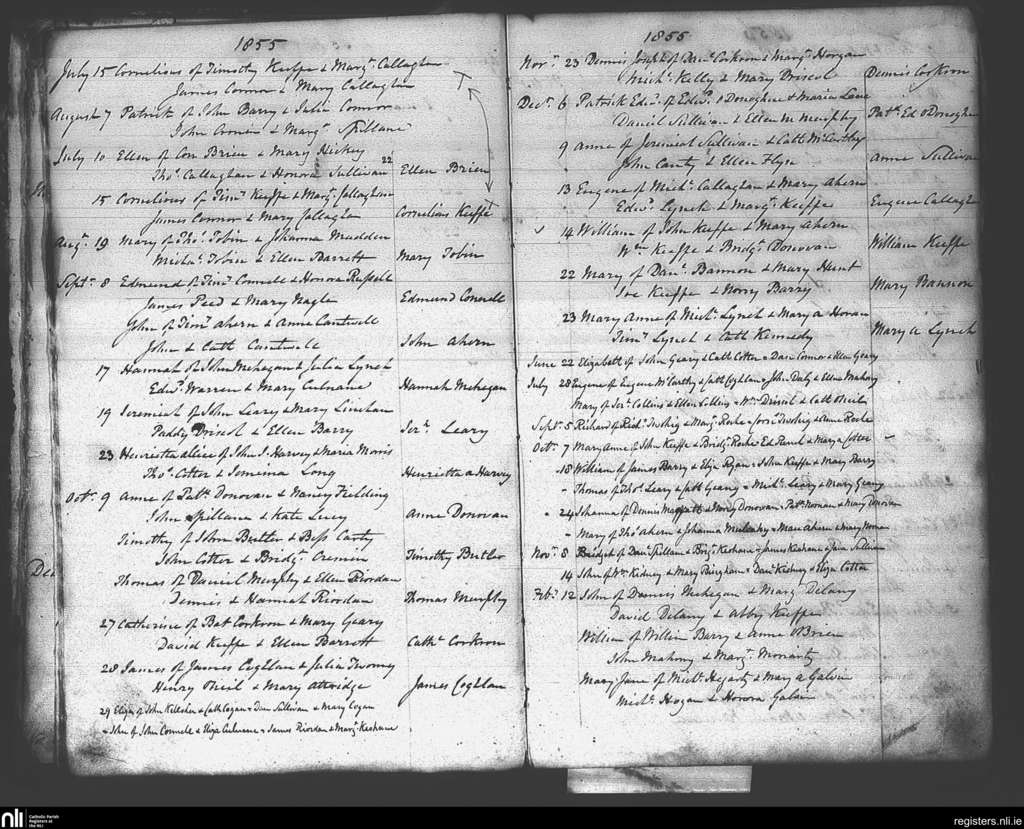 1855
July 15 Cornelious of Timothy Keeffe & Margt. Callaghan
James Connor & Mary Callaghan
August 7 Patrick of John Barry & Julia Connor
John Cronin & Margt. Spillane
July 10 Ellen of Con Brien & Mary Hickey
Thos. Callaghan & Honora Sullivan 22 Ellen Brien
15 Cornelious of Timy. Keeffe & Margt. Callaghan
James Connor & Mary Callaghan Cornelius Keeffe
Augt. 19 Mary of Thos. Tobin & Johanna Madden
Michal. Tobin & Ellen Barrett Mary Tobin
Septr. 8 Edmund of Timy. Connell & Honora Russell
James Peed & Mary Nagle Edmund Connell
John of Timy. Ahern & Anne Cantwell
John & Cath Cantwell John Ahern
17 Hannah of John Mehegan & Julia Lynch
Edwd. Warren & Mary Culnane Hannah Mehegan
19 Jeremiah of John Leary & Mary Linehan
Paddy Driscol & Ellen Barry Jerh. Leary
23 Henrietta Alice of John I. Harvey & Maria Morris
Thos. Cotter & Jemima Long Henrietta Harvey
Octr. 9 Anne of Patk. Donovan & Nancy Fielding
John Spillane & Kate Lucy Anne Donovan
Timothy of John Butler & Bess Canty
John Cotter & Bridgt. Cremin Timothy Butler
Thomas of Daniel Murphy & Ellen Riordan
Dennis & Hannah Riordan Thomas Murphy
27 Catherine of Bat Corkron & Mary Geary
David Keeffe & Ellen Barrett Cathe. Corkron
28 James of James Coghlan & Julia Twomey
Henry Sheil & Mary Attridge James Coghlan
29 Eliza of John Kelleher & Cath Cogan = Dan Sullivan & Mary Cogan
" John of John Connell & Eliza Culnane = James Riordan & Margt. Keohane
1855
Novr. 23 Dennis Joseph of Danl. Corkron & Margt. Horgan
Michl. Kelly & Mary Driscol Dennis Corkron
Decr. 6 Patrick Edwd. of Edwd. O'Donoghue & Maria Lane
Daniel Sullivan & Ellen M Murphy Patk. Ed O'Donoghue
9 Anne of Jeremiah Sullivan & Cath McCarthy
John Canty & Ellen Flyn Anne Sullivan
13 Eugene of Michl. Callaghan & Mary Ahern
Edwd. Lynch & Margt. Keeffe Eugene Callaghan
14 William of John Keeffe & Mary Ahern
Wm. Keeffe & Bridgt. Donovan William Keeffe
22 Mary of Danl. Bannon & Mary Hunt
Joe Keeffe & Norry Barry Mary Bannon
23 Mary Anne of Michl. Lynch & Mary A Horan
Timy. Lynch & Cath Kennedy Mary A Lynch
June 22 Elizabeth of John Geary & Cath Cotter = Dan Connor & Ellen Geary
July 28 Eugene of Eugene McCarthy & Cath Coghlan = John Daly & Ellen Mahony
Mary of Jerh. Collins & Ellen Collins = Wm. Driscol & Cath Sheil
Septr. 5 Richard of Richd. & Margt. Roche = & Anne Roche
Octr. 7 Mary Anne of John Keeffe & Bridgt. Roche = Ed & Mary A Cotter
18 William of James Barry & Eliza Ryan = John Keeffe & Mary Barry
" Thomas of Thos. Leary & Cath Geary = Michl. Leary & Mary Geary
" 24 Johanna of Dennis & Mary Donovan = Patk. Noonan & Mary Donovan
" Mary of Thos. Ahern & Johanna Mulcahy = Mau Ahern & Mary Noonan
Novr. 8 Bridget of Danl. Spillane & Bridgt. Keohane = James Keohane & Julia Sullivan
14 John of Wm. Kidney & Mary Bingham = Danl. Kidney & Eliza Cotter
Feby. 12 John of Dennis Mehegan & Margt. Delany
David Delany & Abby Keeffe
William of William Barry & Anne O'Brien
John Mahony & Margt. Moriarty
Mary Jane of Michl. Hegarty & Mary A Galvin
Michl. Hogan & Honora Galvin
nli Catholic Parish Registers at the NLI
registers.nli.ie